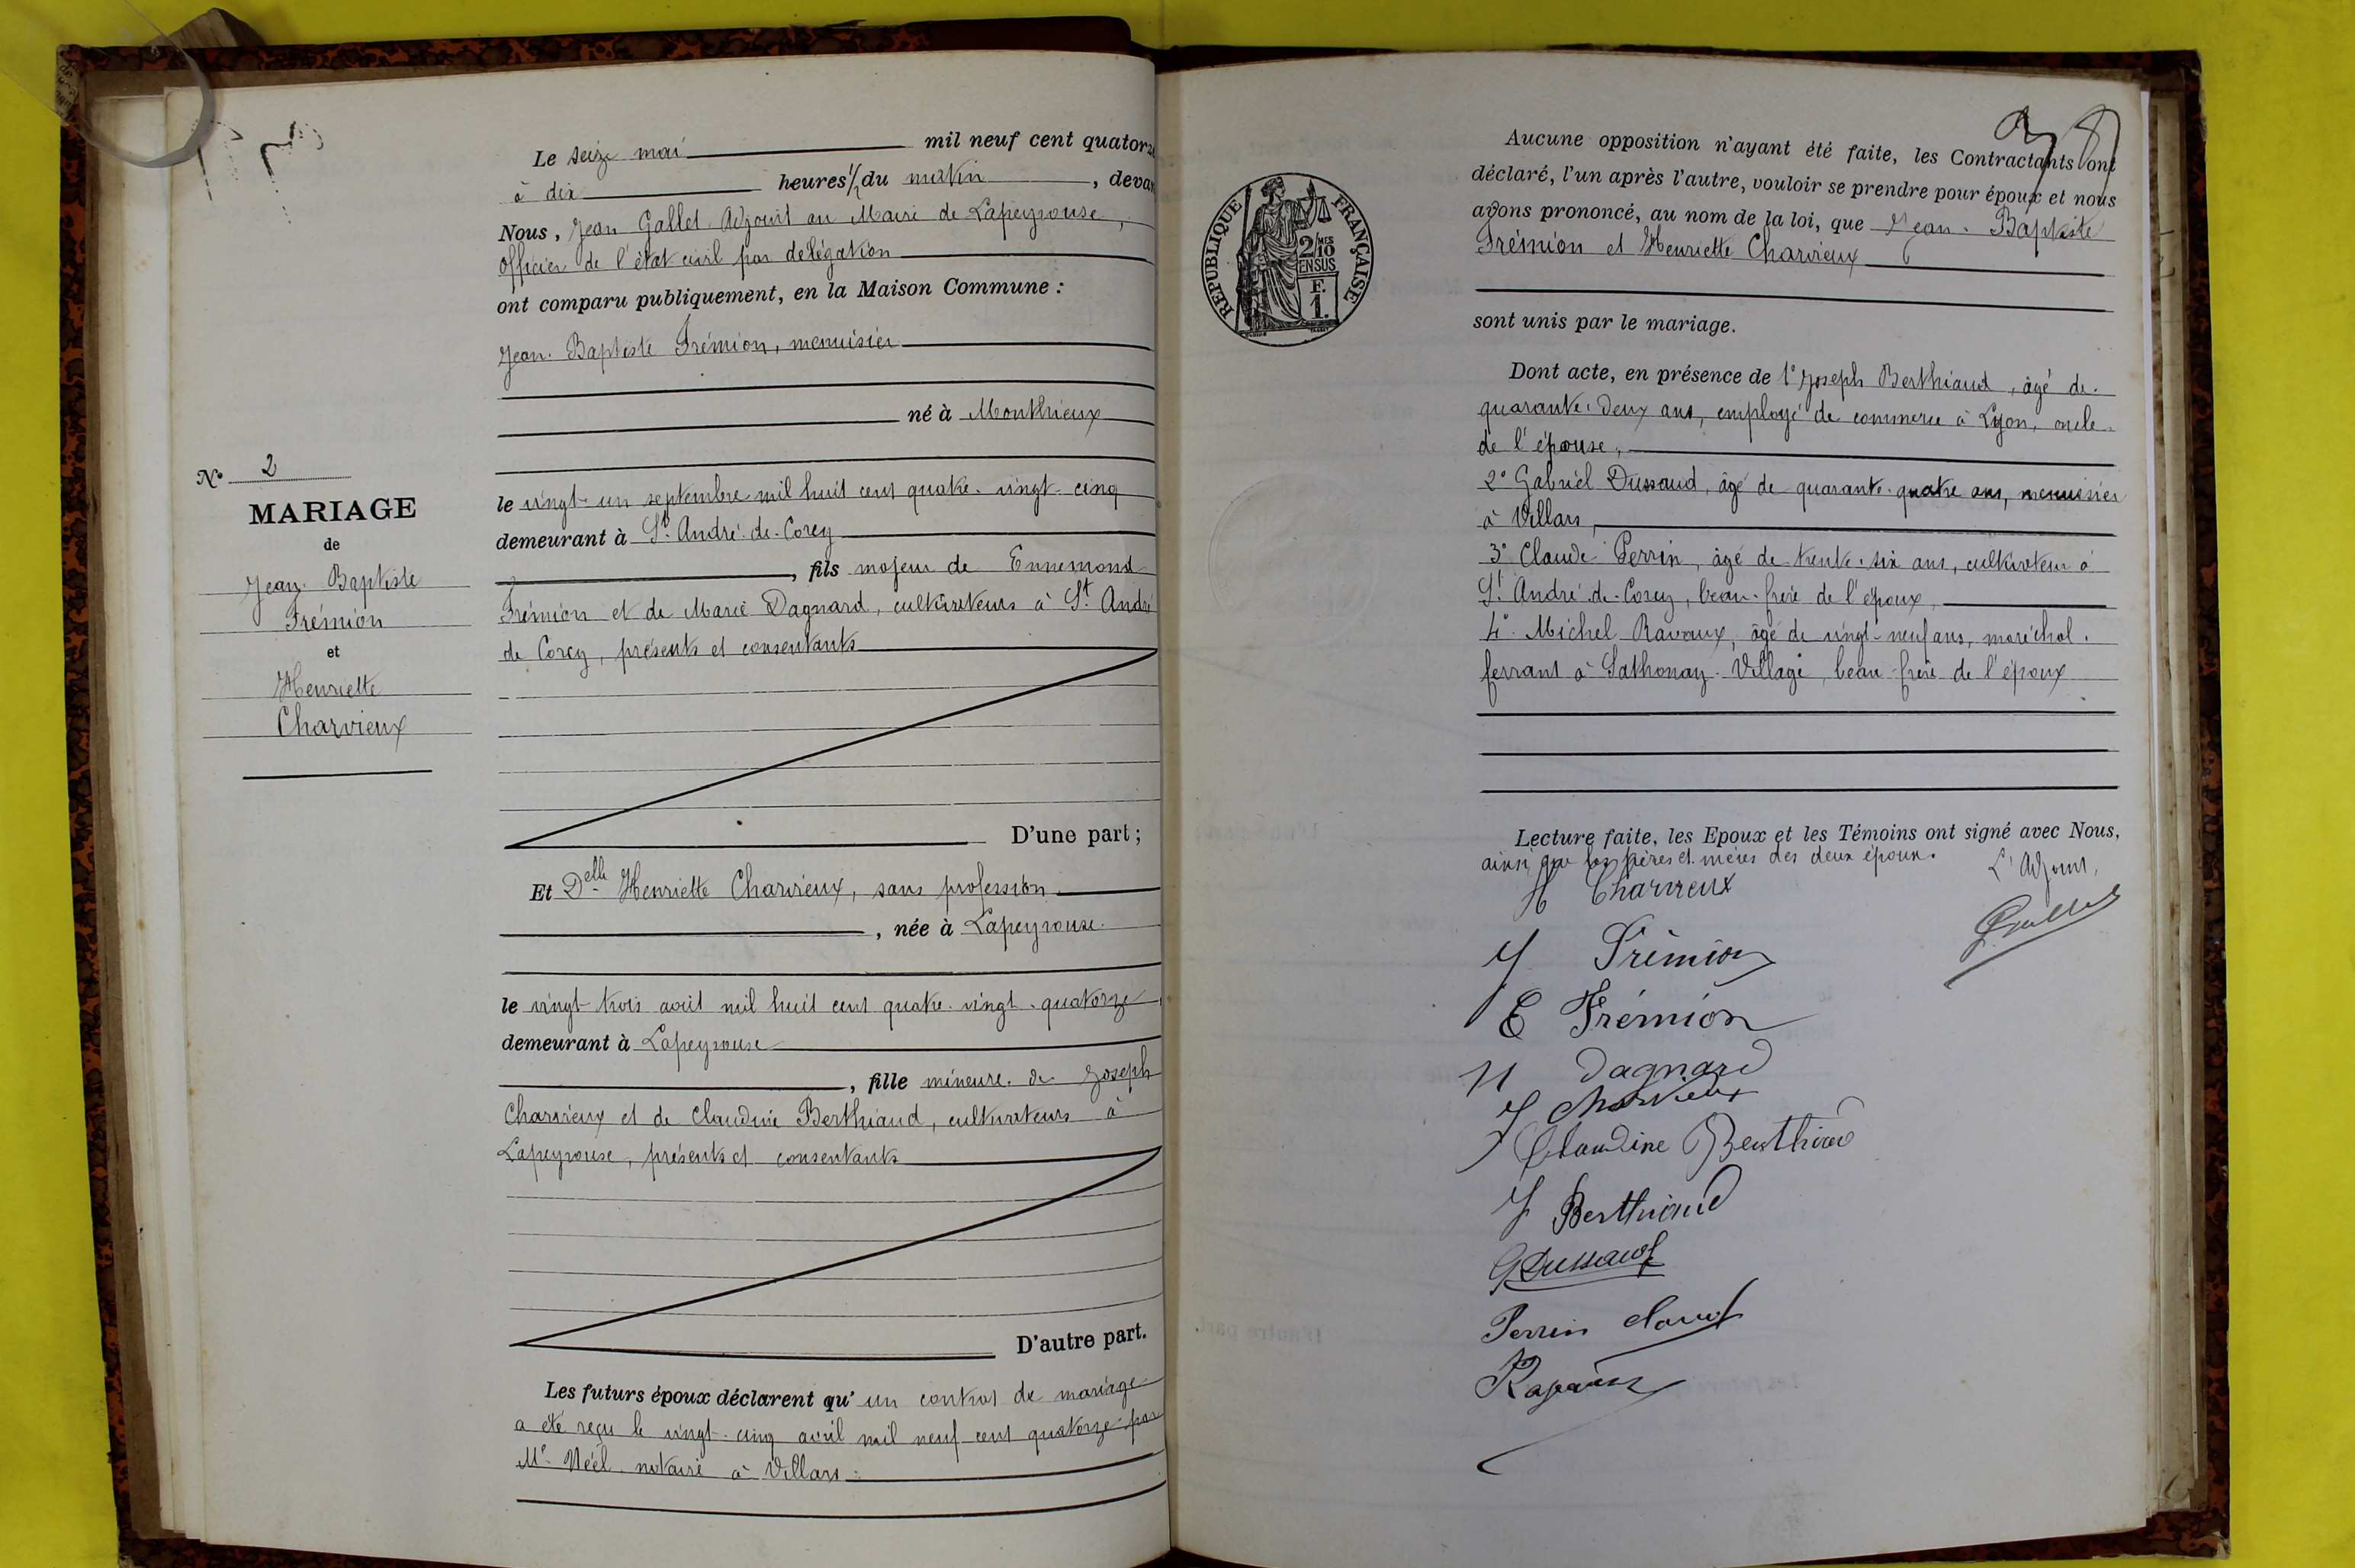 Le seize mai mil neuf cent quatorze
à dix heures 1/2 du matin, devant
Nous, Jean Gallet Adjoint au Maire de Lapeyrouse,
Officier de l'état civil par délégation
ont comparu publiquement, en la Maison Commune :
Jean-Baptiste Trémion, menuisier
né à Monthieux
le vingt-un septembre mil huit cent quatre-vingt-cinq
demeurant à St André-de-Corcy
, fils majeur de Ennemond
Trémion et de Marie Dagnard, cultivateurs à St André
de Corcy, présents et consentants
D'une part ;
Et Delle Henriette Charvieux, sans profession
, née à Lapeyrouse
le vingt-trois août mil huit cent quatre-vingt-quatorze
demeurant à Lapeyrouse
, fille mineure de Joseph
Charvieux et de Claudine Berthiaud, cultivateurs à
Lapeyrouse, présents et consentants
D'autre part.
Les futurs époux déclarent qu'un contrat de mariage
a été reçu le vingt-cinq avril mil neuf cent quatorze par
Me Néel notaire à Villars
N° 2
MARIAGE
de
Jean-Baptiste
Trémion
et
Henriette
Charvieux
RÉPUBLIQUE FRANÇAISE
2/10MES
EN SUS
F.
1.
Aucune opposition n'ayant été faite, les Contractants ont
déclaré, l'un après l'autre, vouloir se prendre pour époux et nous
avons prononcé, au nom de la loi, que Jean-Baptiste
Trémion et Henriette Charvieux
sont unis par le mariage.
Dont acte, en présence de 1° Joseph Berthiaud, âgé de
quarante-deux ans, employé de commerce à Lyon, oncle
de l'épouse,
2° Gabriel Dussaud, âgé de quarante-quatre ans, menuisier
à Villars,
3° Claude Perrin, âgé de trente-six ans, cultivateur à
St André-de-Corcy, beau-frère de l'époux,
4° Michel Ravaux, âgé de vingt-neuf ans, maréchal-
ferrant à Sathonay-Village, beau-frère de l'époux
Lecture faite, les Epoux et les Témoins ont signé avec Nous,
ainsi que les pères et mères des deux époux.
L'Adjoint,
H Charvieux
J Trémion
E Trémion
M Dagnard
J Charvieux
Claudine Berthiaud
J Berthiaud
G Dussaud
Perrin Claude